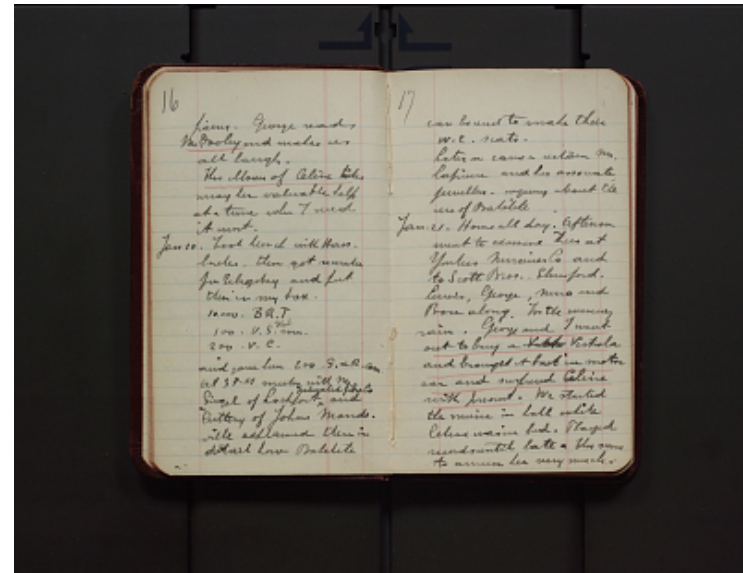 16
George reads
Mr Dooley and makes us
all laugh.
The Maid of Celine takes
away her valuable help
at a time when I need
it most.
Jan 20. Took lunch with Hass-
lacher. then got number
for and put
them in my box.
10,000. B.R.T
100. U.S. com.
200. V.C.
and gave him 200
At 3 P.M. meeting with Mr
Siegel of Lockport, and
of Johns Manda-
ville explained them in
detail how Bakelite
17
can be used to make their
W.C. seats.
Later on came a certain Mr.
and his associate
jeweller. inquiry about the
use of Bakelite
Jan. 21. Home all day. Afternoon
went to examine trees at
Yonkers Nurseries Co and
to Scott Bros. Elmsford.
George, Nina and
Rose along. In the evening
rain. George and I went
out to buy a Victrola
and brought it back in motor
car and surprised Celine
with present. We started
the music in hall while
Celine was in bed. Played
records until late & this seems
to amuse her very much.